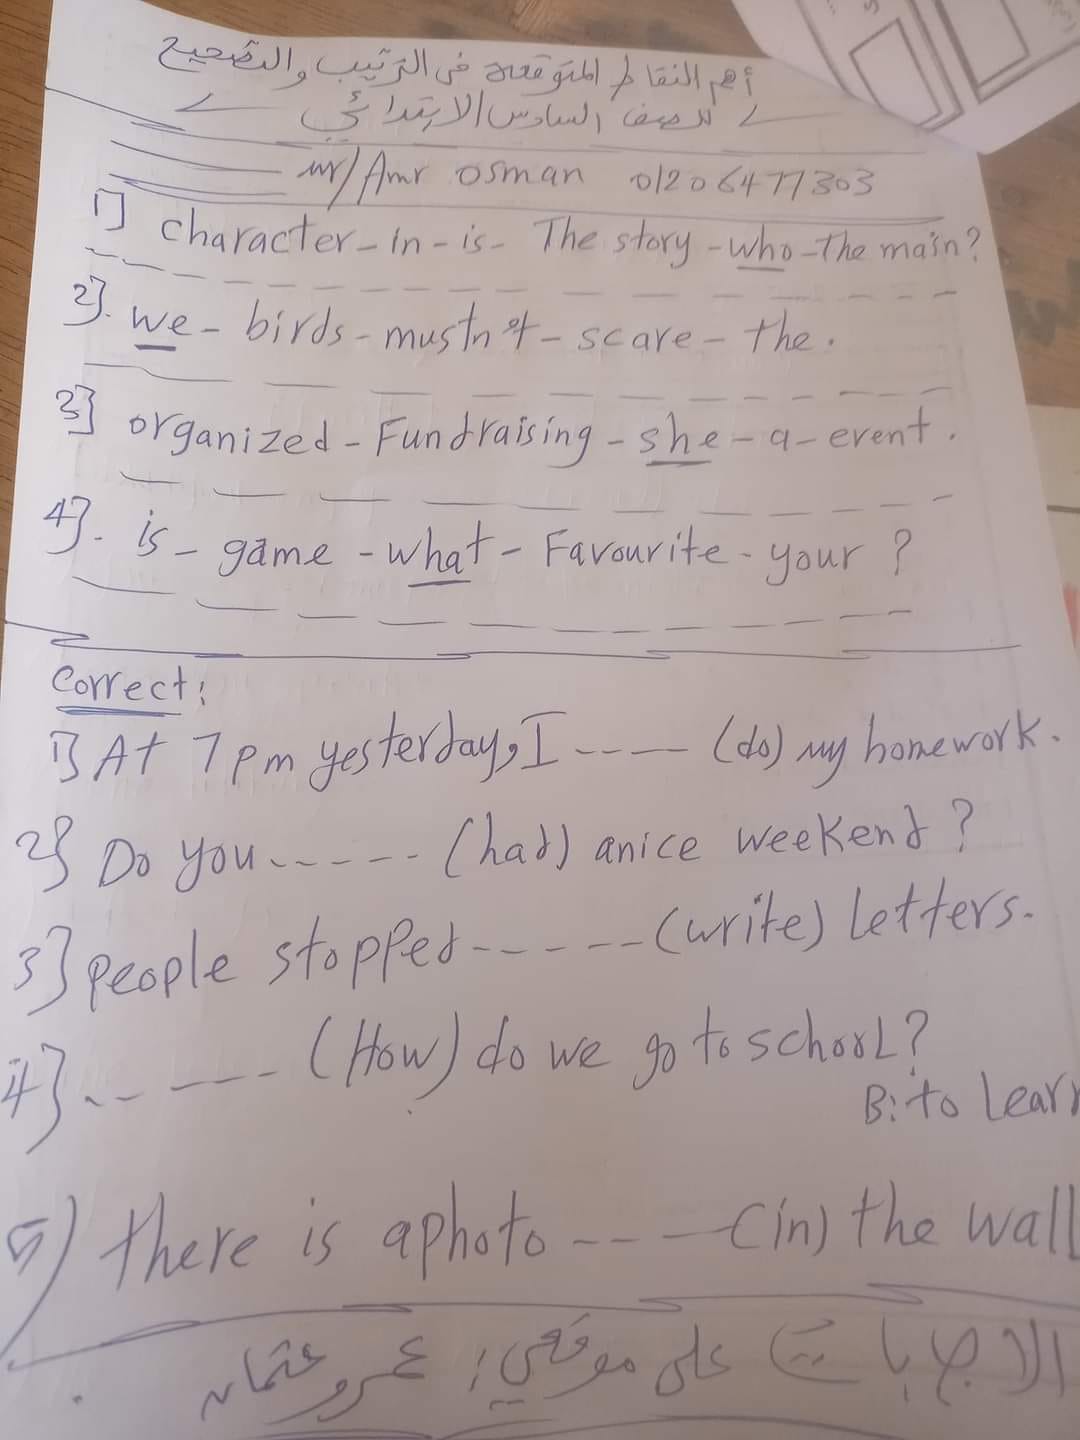 أهم النقاط المتوقعة فى الترتيب والتصحيح
للصف السادس الابتدائي
mr/Amr osman 01206477303
1] character - in - is - The story - who - the main?
2]. we - birds - mustn't - scare - the .
3] organized - Fundraising - she - a - event .
4]. is - game - what - Favourite - your ?
Correct:
1] At 7 pm yesterday, I ---- (do) my homework.
2} Do you ------ (had) anice weekend ?
3] people stopped ------ (write) letters.
4} ------ (How) do we go to school?
B: to Lear
5) there is aphoto ---- (in) the wall
الاجابات على موقعي: عمرو عثمان